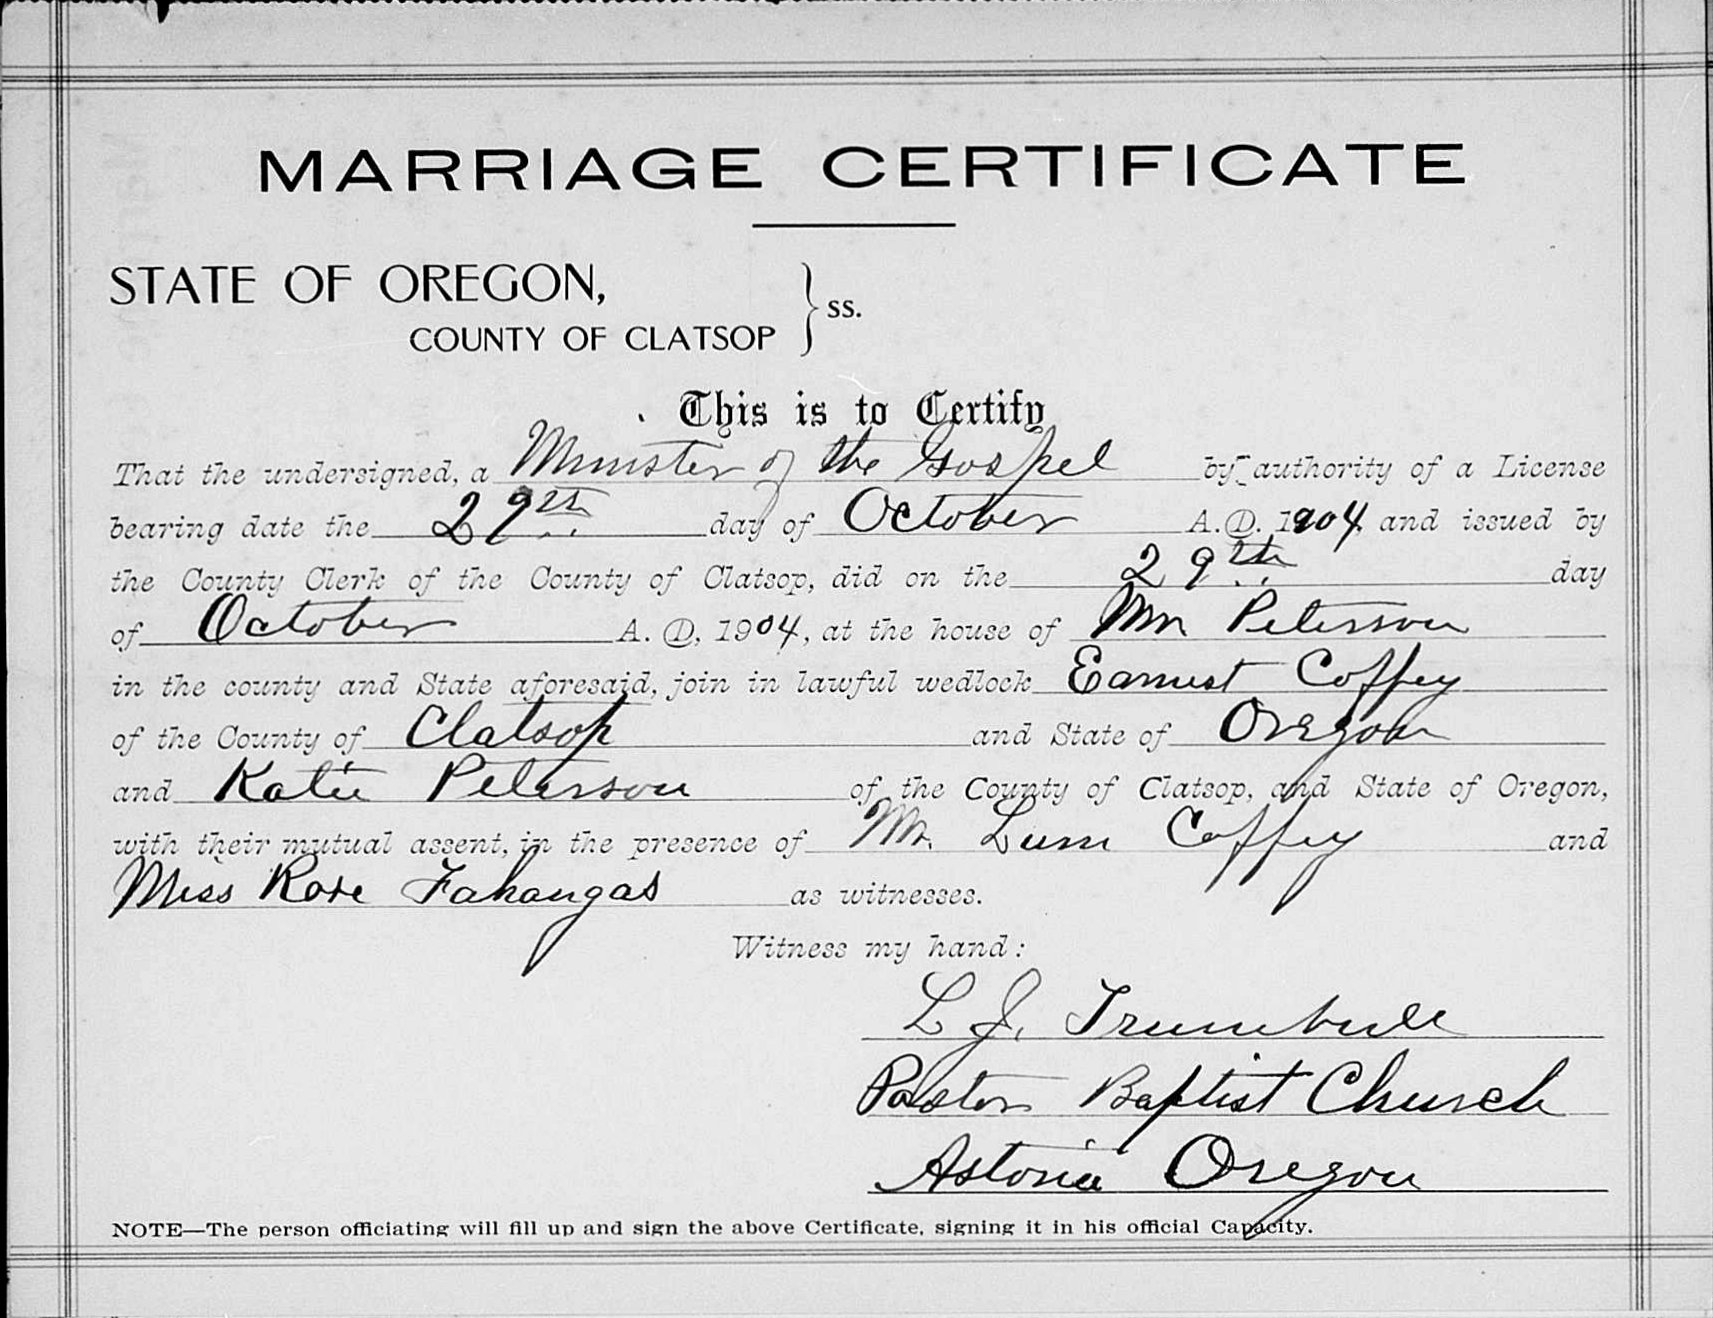 MARRIAGE CERTIFICATE
STATE OF OREGON,
COUNTY OF CLATSOP } ss.
This is to Certify
That the undersigned, a Minister of the Gospel by authority of a License
bearing date the 29th day of October A. D. 1904 and issued by
the County Clerk of the County of Clatsop, did on the 29th day
of October A. D. 1904, at the house of Mr Peterson
in the county and State aforesaid, join in lawful wedlock Earnest Coffey
of the County of Clatsop and State of Oregon
and Katie Peterson of the County of Clatsop, and State of Oregon,
with their mutual assent, in the presence of Mr. Lum Coffey and
Miss Rose Fahangas as witnesses.
Witness my hand:
L J. Trumbull
Pastor Baptist Church
Astoria Oregon
NOTE—The person officiating will fill up and sign the above Certificate, signing it in his official Capacity.